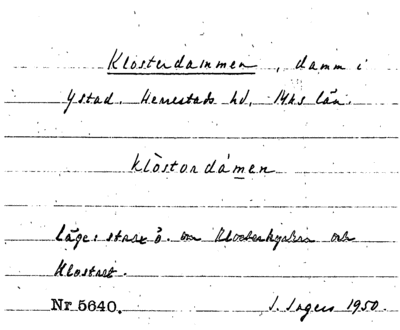 Klosterdammen, damm i
Ystad. Herrestads hd, Mhs län.
klòstərdámen
Läge: strax ö. om Klosterkyrkan och
Klostret.
Nr 5640. I. Ingers 1950.